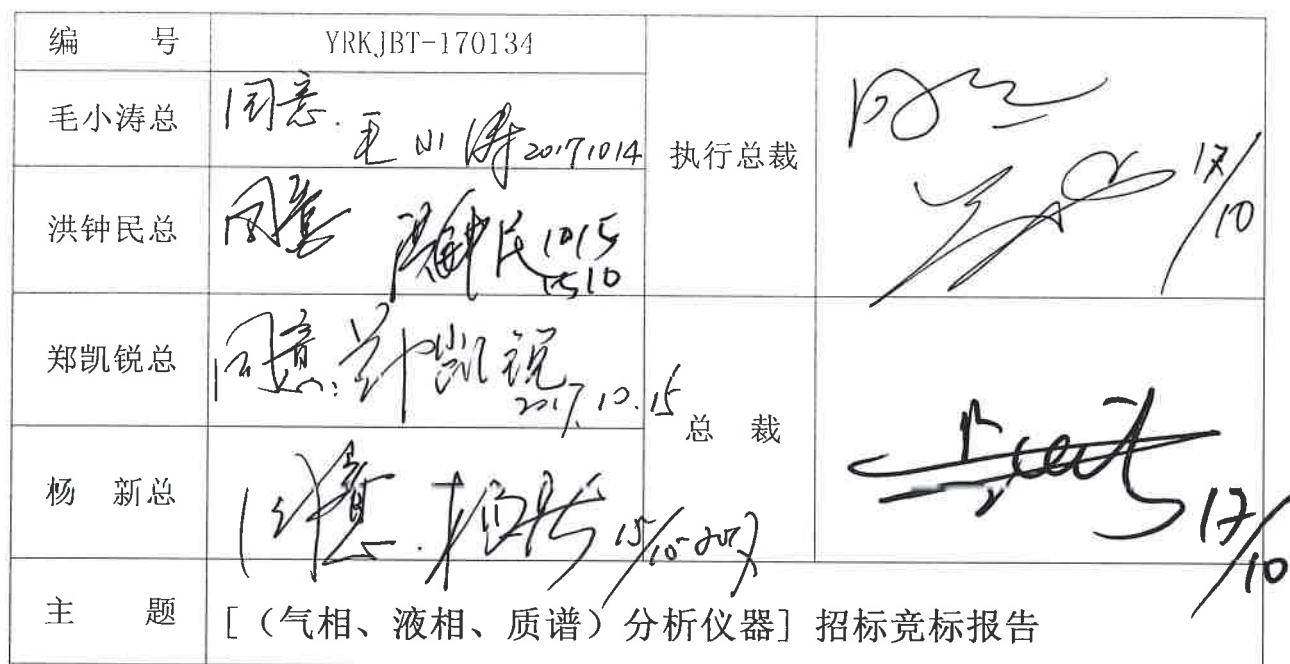 编 号 YRKJBT-170134
毛小涛总 同意. 毛小涛 20171014
执行总裁 同意 17/10
洪钟民总 同意 洪钟民 1015
郑凯锐总 同意. 郑凯锐 2017.10.15
总 裁 17/10
杨 新总 同意. 杨新 15/10-2017
主 题 [（气相、液相、质谱）分析仪器] 招标竞标报告